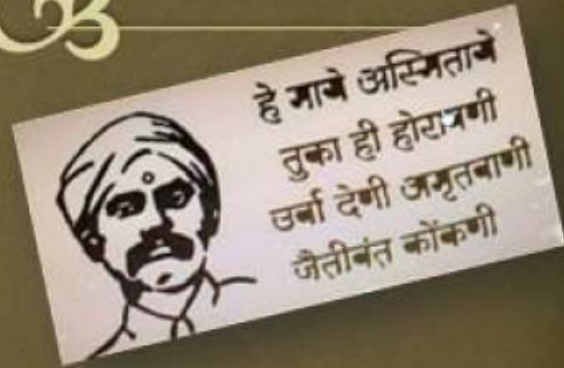 हे माये अस्मिताये
तुका ही होरावणी
उर्बा देणी अमृतबाणी
जैतीवंत कोंकणी